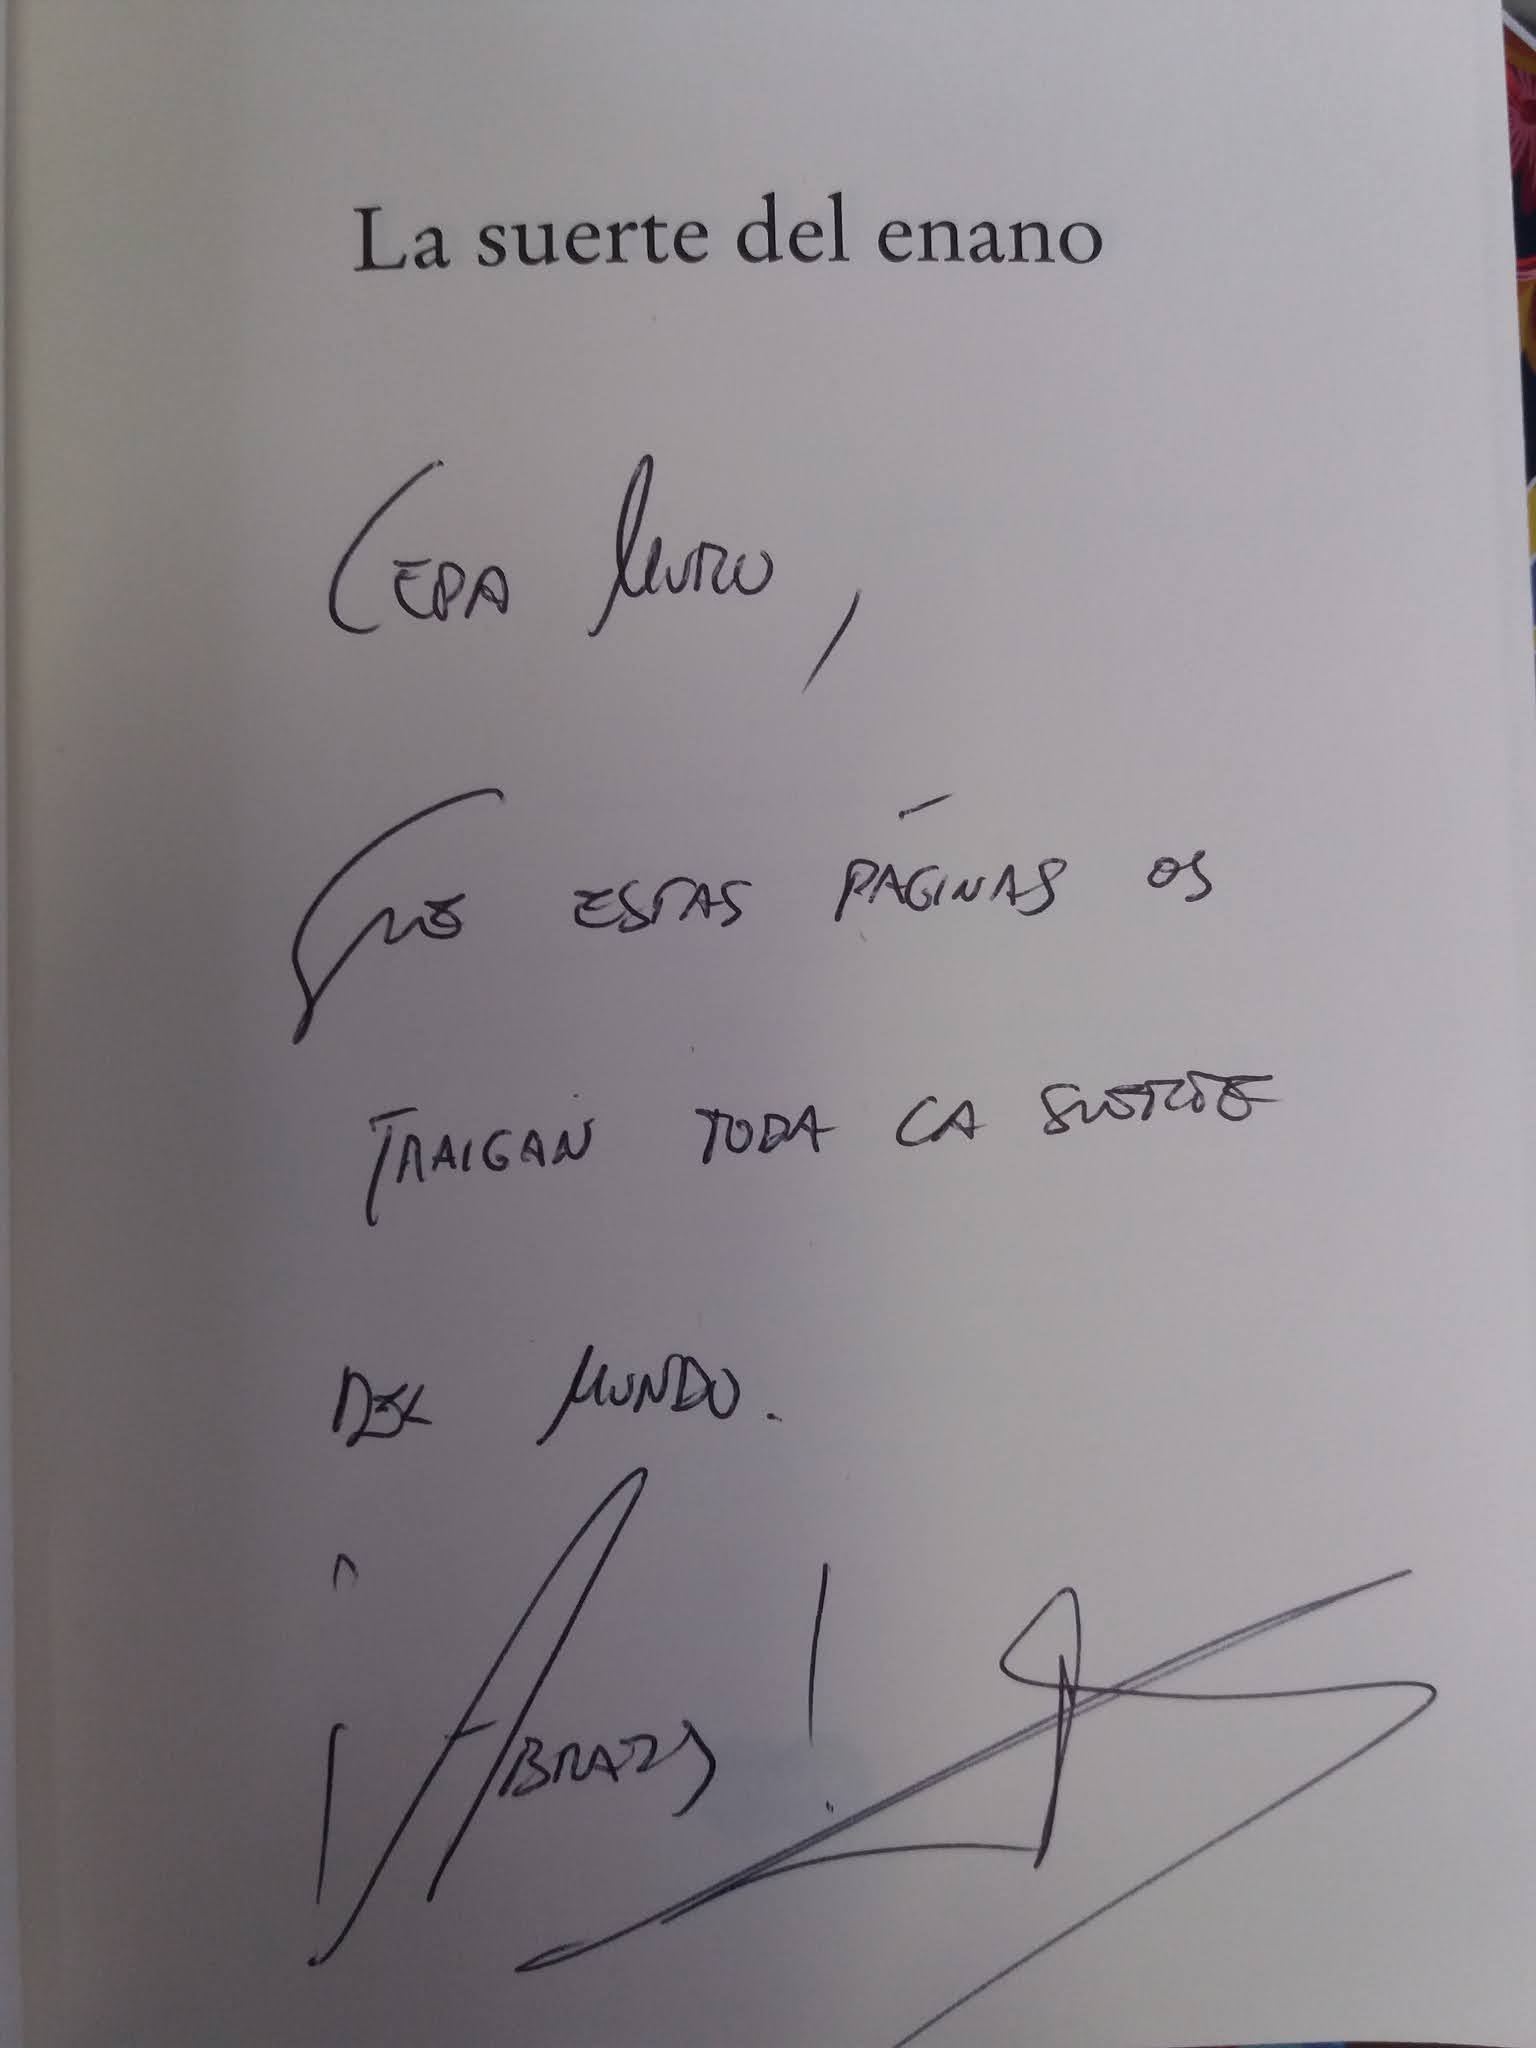 La suerte del enano
CEPA MURO,
QUE ESTAS PÁGINAS OS
TRAIGAN TODA LA SUERTE
DEL MUNDO.
¡ABRAZOS!